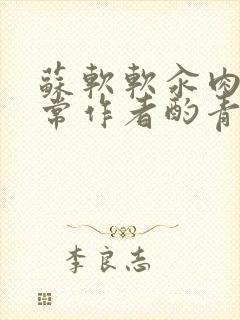 蘇軟軟汆肉
常作者酌青
李良志